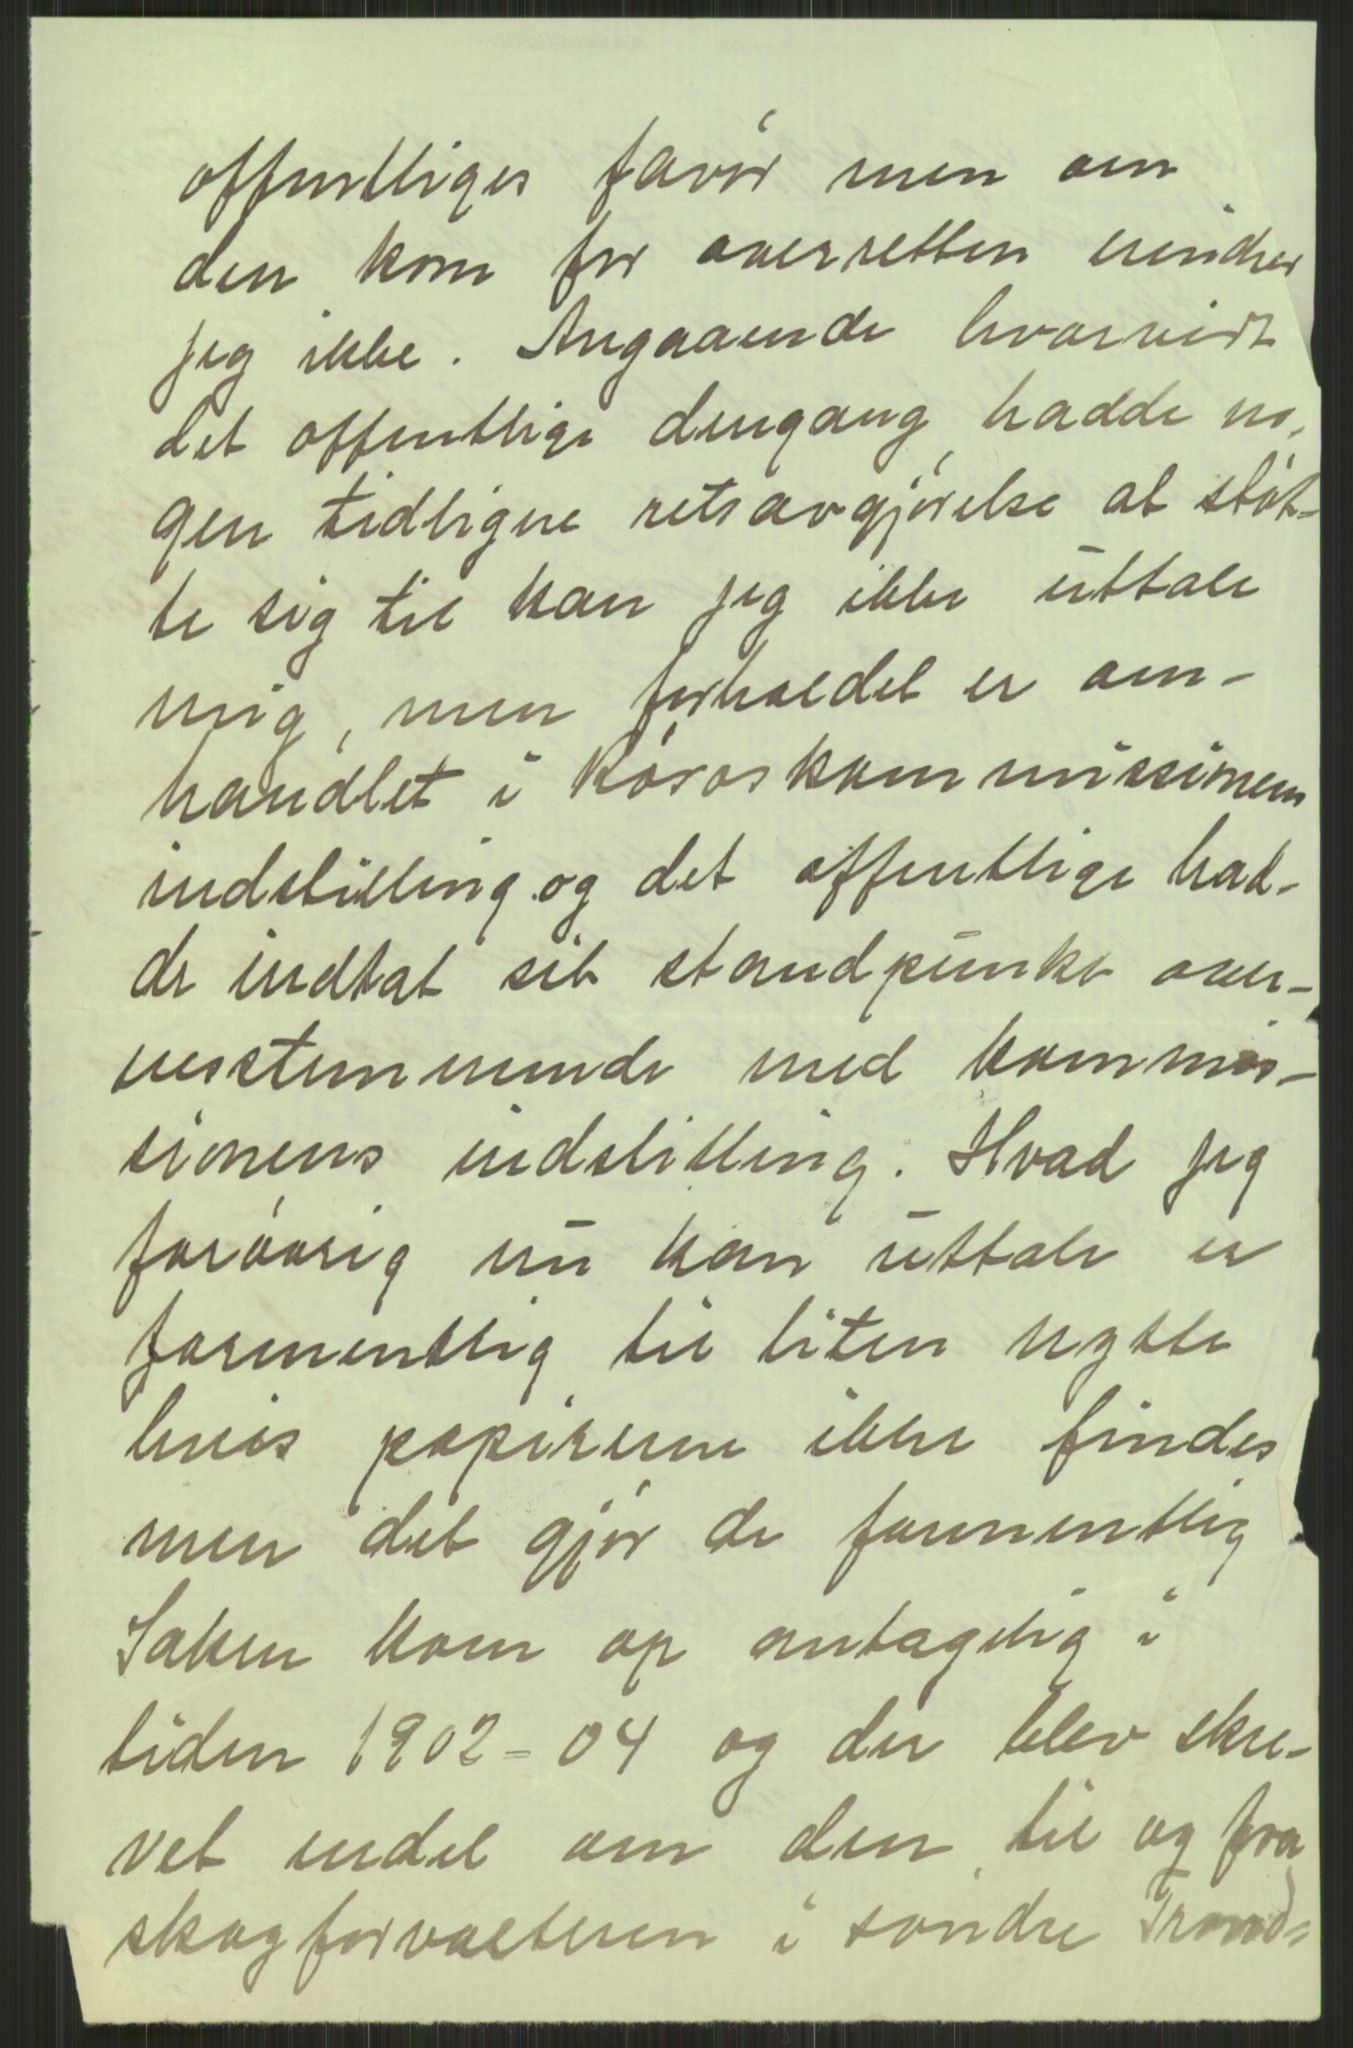 offentliges favór men om
den kom for overretten erindrer
jeg ikke. Angaaende hvorvidt
det offentlige dengang hadde no-
gen tidligere retsavgjórelse at stót-
te sig til kan jeg ikke uttale
mig, men forholdet er om-
handlet i Róroskommissionens
indstilling og det offentlige had-
de indtat sit standpunkt over-
ensstemmende med kommis-
sionens indstilling. Hvad jeg
foróvrig nu kan uttale er
formentlig til liten nytte
hvis papirerne ikke findes
men det gjór de formentlig
Saken kom op antagelig i
tiden 1902-04 og der blev skre-
vet endel om den til og fra
skogforvalteren i sóndre Trond-